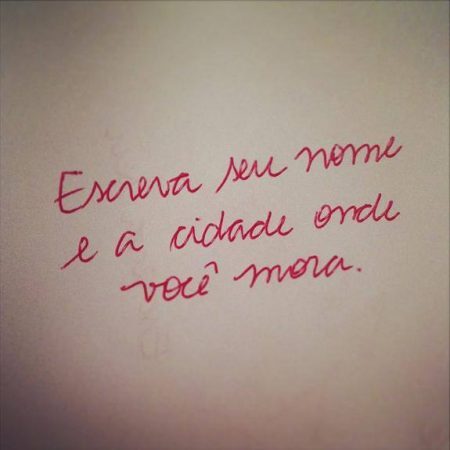 Escreva seu nome
e a cidade onde
você mora.